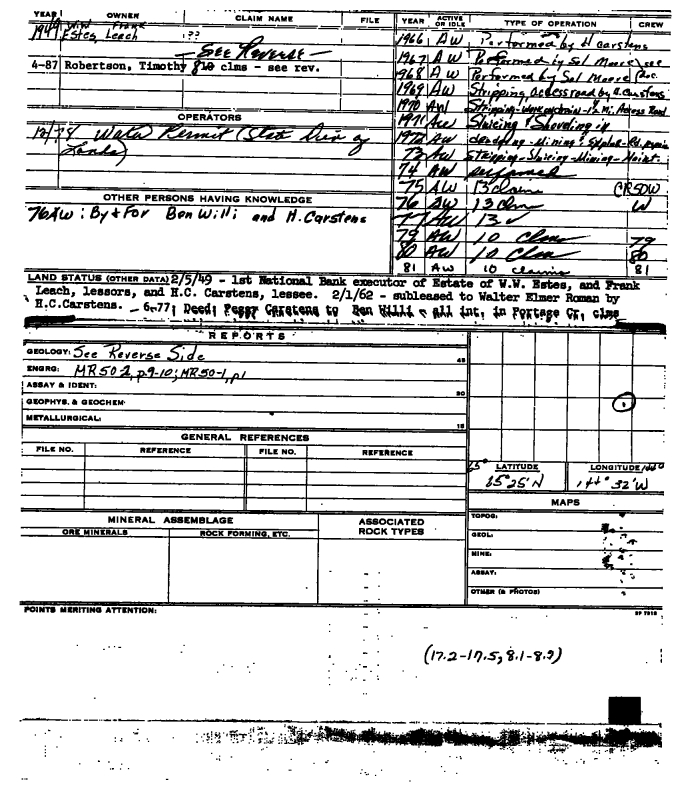 YEAR OWNER CLAIM NAME FILE
W.W. Frank
Estes, Leach ??
- See Reverse -
4-87 Robertson, Timothy clms - see rev.
OPERATORS
12/78 Water Permit (State Div of
Lands)
OTHER PERSONS HAVING KNOWLEDGE
76AW: By & For Ben Willi and H. Carstens
YEAR ACTIVE OR IDLE TYPE OF OPERATION CREW
1966 AW Performed by H Carstens
1967 AW Performed by Sol Moore see
1968 AW Performed by Sol Moore
1969 AW Stripping, access road by H. Carstens
1970 AW Stripping - - 1/2 mi. Access Road
1971 AW Sluicing & Shoveling in
1972 AW Mining
73 AW Stripping-Sluicing-Mining-Maint.
74 AW
75 AW 13 claim
76 AW 13 clm W
77 AW 13 ✓
79 AW 10 clms 79
80 AW 10 clms 80
81 AW 10 claims 81
LAND STATUS (OTHER DATA) 2/5/49 - 1st National Bank executor of Estate of W.W. Estes, and Frank
Leach, lessors, and H.C. Carstens, lessee. 2/1/62 - subleased to Walter Elmer Roman by
H.C.Carstens. - 6-77; Deed; Peggy Carstens to Ben Willi - all int. in Portage Cr. clms
REPORTS
GEOLOGY: See Reverse Side 45
ENGRG: MR 50-2, p.9-10; MR 50-1, p1
ASSAY & IDENT: 30
GEOPHYS. & GEOCHEM:
METALLURGICAL: 15
GENERAL REFERENCES
FILE NO. REFERENCE FILE NO. REFERENCE
65° LATITUDE LONGITUDE 144°
65° 25' N 144° 32' W
MAPS
TOPOG:
GEOL:
MINE:
ASSAY:
OTHER (& PHOTOS)
MINERAL ASSEMBLAGE ASSOCIATED
ORE MINERALS ROCK FORMING, ETC. ROCK TYPES
POINTS MERITING ATTENTION:
(17.2-17.5, 8.1-8.9)